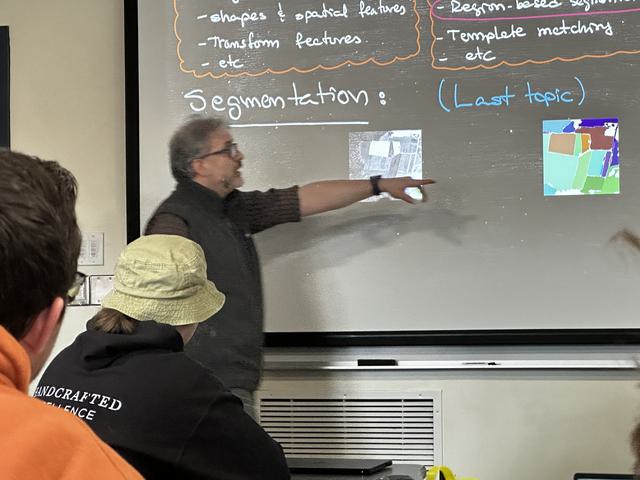 - shapes & spatial features
- Transform features
- etc
- Region-based
- Template matching
- etc
Segmentation :
(Last topic)
HANDCRAFTED